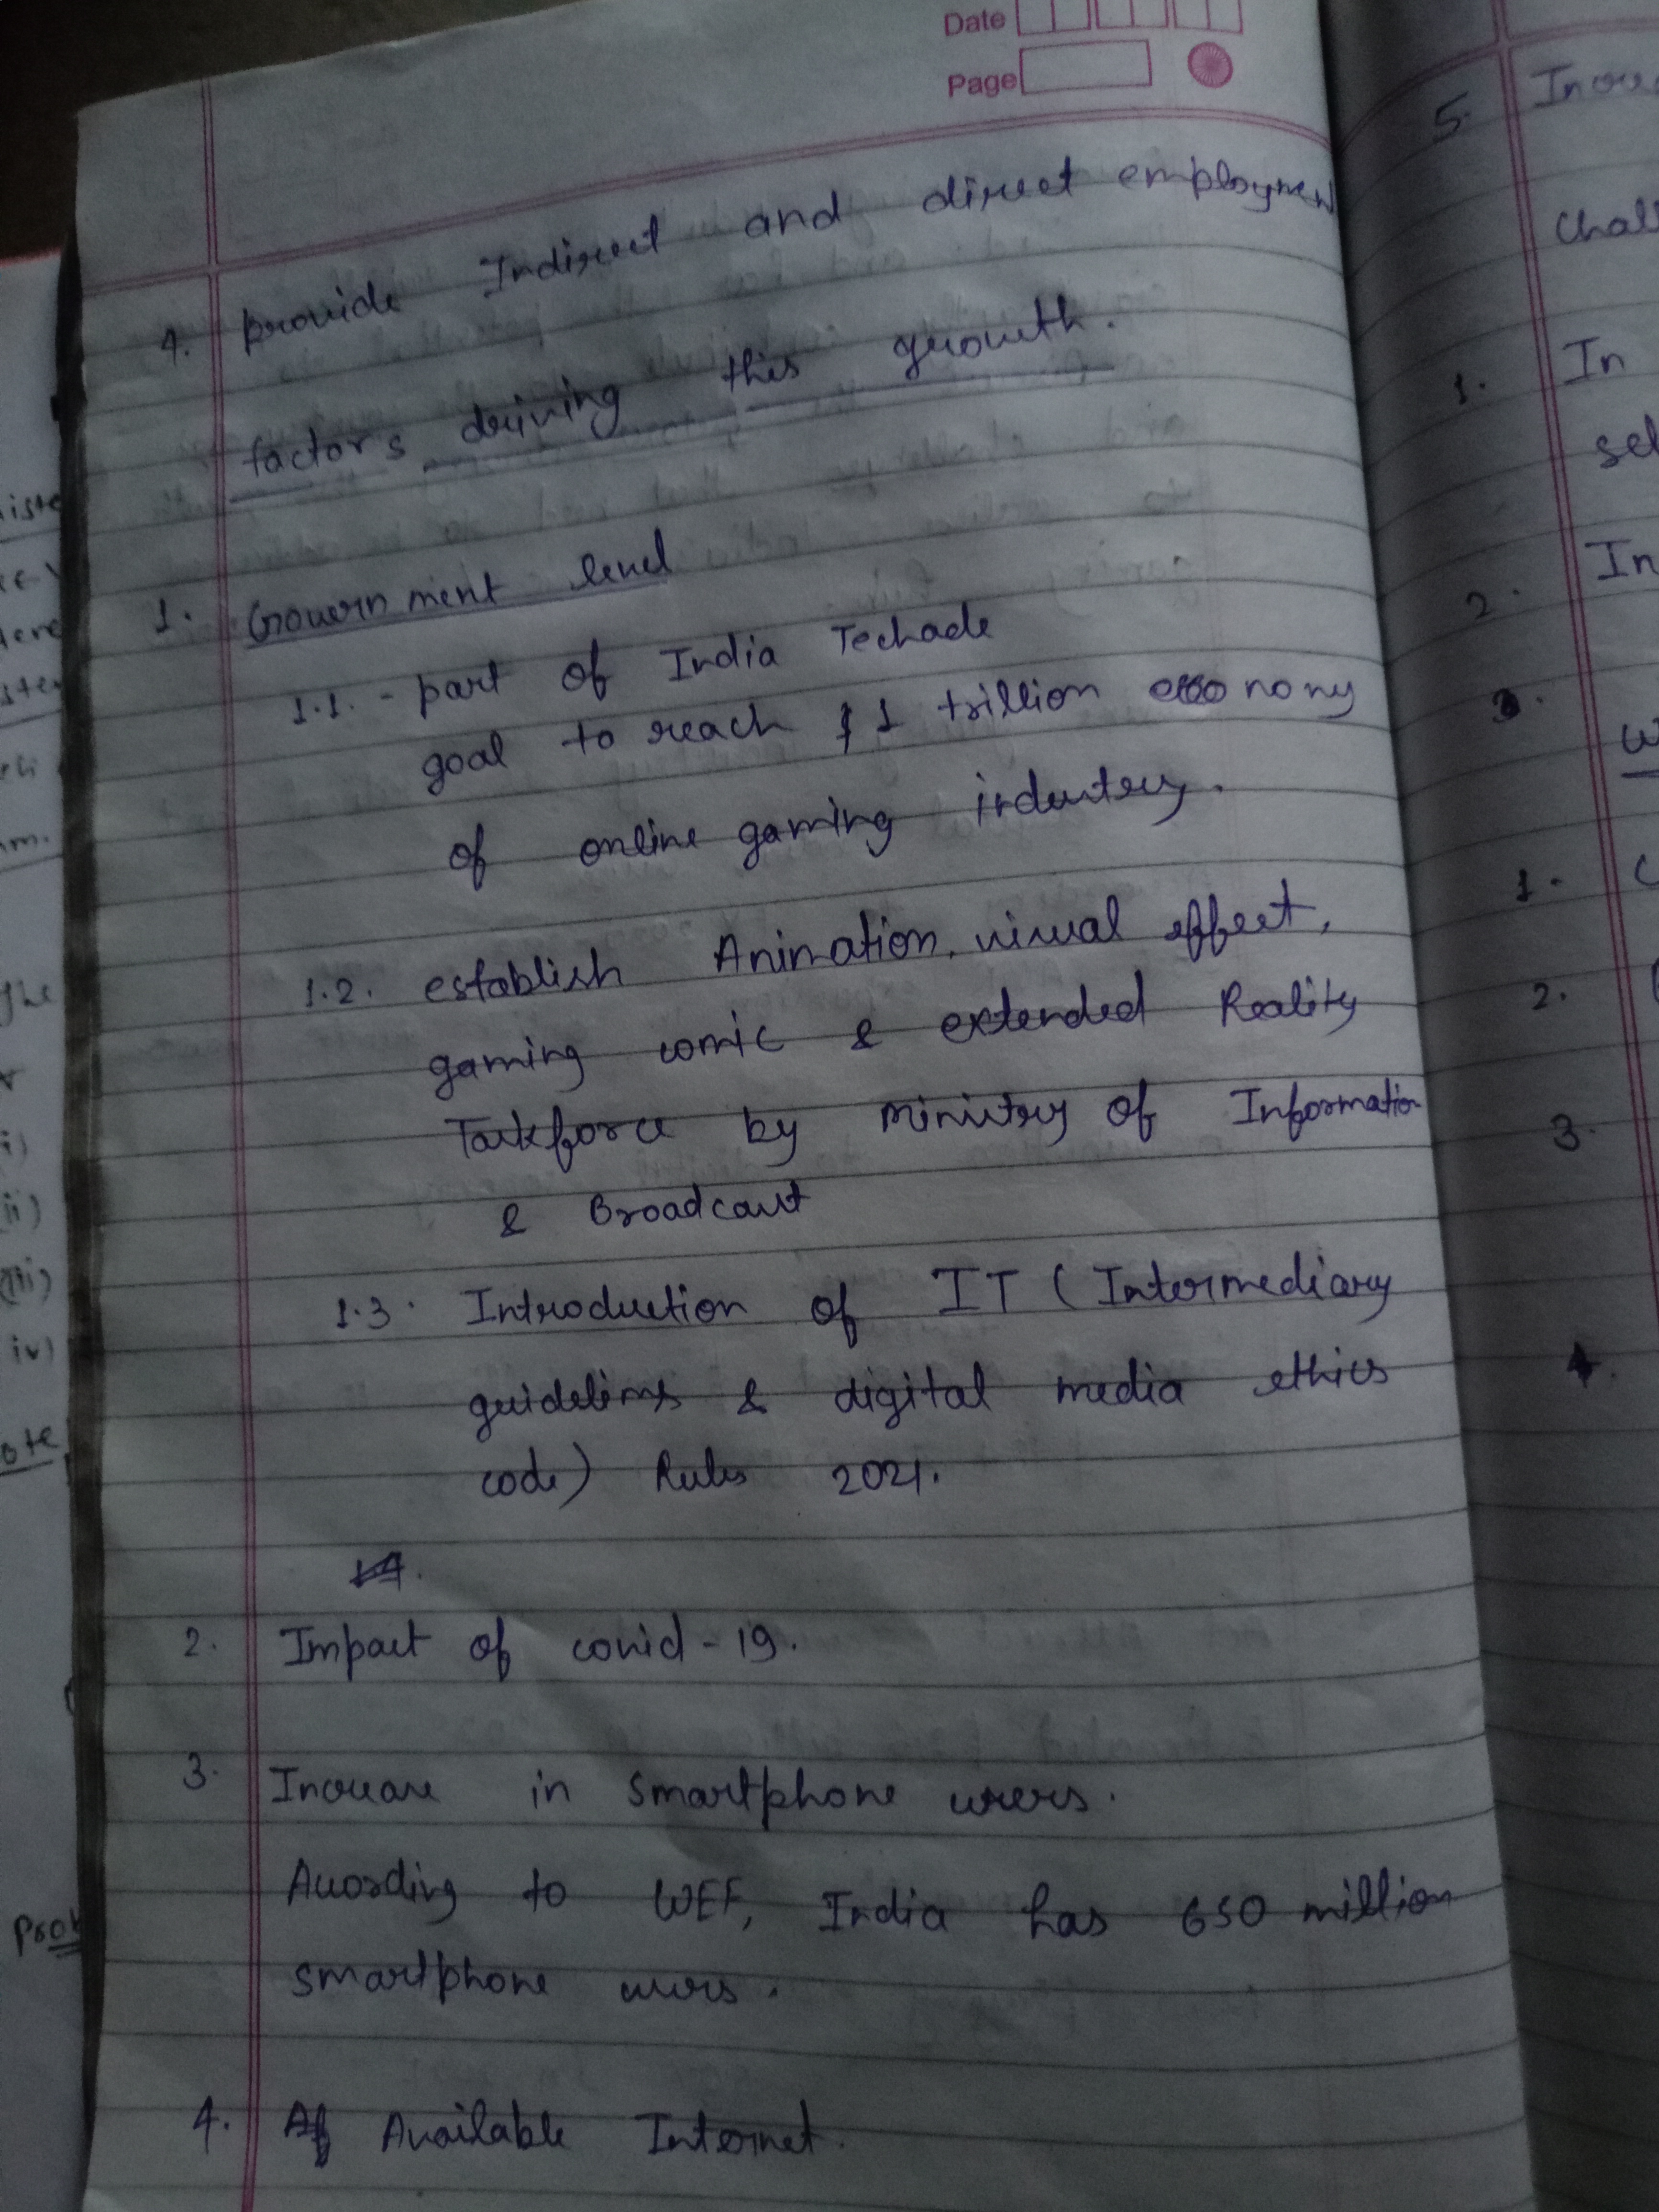 Date
Page
4. provide Indirect and direct employmen
factors driving this growth.
1. Government level
1.1. - part of India Techade
goal to reach $1 trillion economy
of online gaming industry.
1.2. establish Animation, visual effect,
gaming comic & extended Reality
Taskforce by Ministry of Information
& Broadcast
1.3. Introduction of IT (Intermediary
guidelines & digital media ethics
code) Rules 2021.
1.4.
2. Impact of covid-19.
3. Increase in smartphone users.
According to WEF, India has 650 million
smartphone users.
4. Af Available Internet.
5.
Chall
1. In
sel
2. In
3.
1.
2.
3.
4.
iste
ere
the
i)
ii)
iii)
iv)
ote